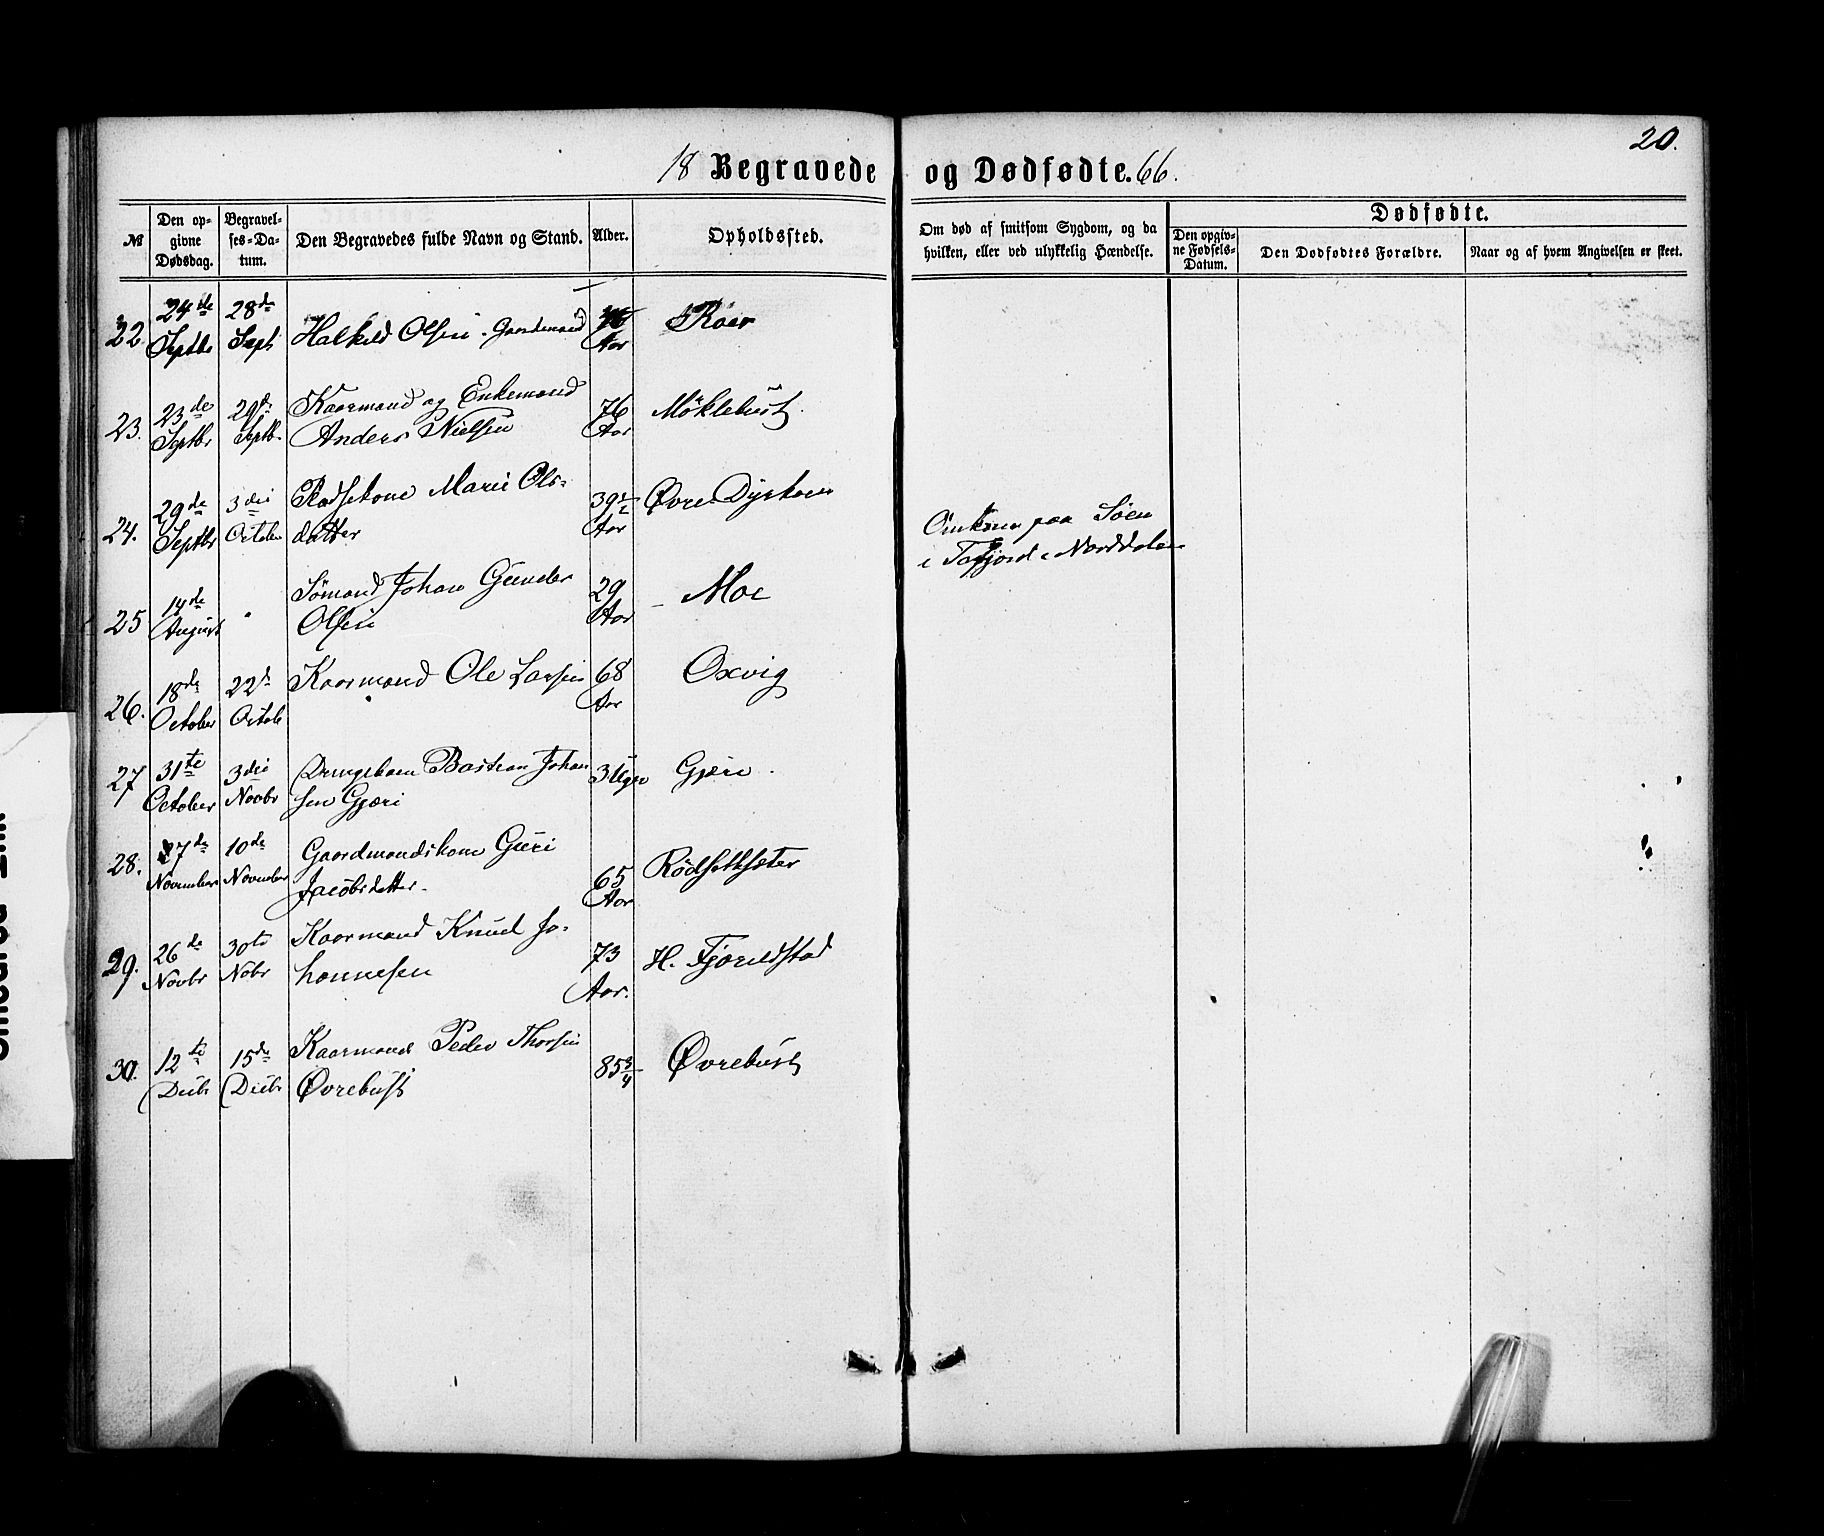 20.
18 Begravede og Dødfødte. 66.
№
Den opgivne Dødsdag.
Begravelses-Datum.
Den Begravedes fulde Navn og Stand.
Alder.
Opholdssted.
Om død af smitsom Sygdom, og da hvilken, eller ved ulykkelig Hændelse.
Dødfødte.
Den opgivne Fødsels-Datum.
Den Dødfødtes Forældre.
Naar og af hvem Angivelsen er skeet.
22. 24de Septbr 28de Sept Halkild Olsen. Gaardmand Aar
23. 23de Septbr 29de Septb. Kaarmand og Enkemand 76 Møklebust.
Anders Nielsen Aar
24. 29de Septbr 3die Octobr Pladsekone Marie Ols- 39½ Øvre Dyrkorn
datter Aar
Omkom paa Søen
i Tafjord i Norddalen
25 14de August Sømand Johan Gunder 29 Moe
Olsen Aar
26. 18de October 22de Octob Kaarmand Ole Larsen 68 Aar Oxvig
27 31te October 3die Novbr Drengebarn Bastian Johan 3 Uger Gjære.
sen Gjære
28. 27de November 10de November Gaardmandskone Guri
Jacobsdatter. 65 Aar Rødsetsæter
29. 26de Novbr 30te Nobr Kaarmand Knud Jo- 73 H. Fjørelstad
hannesen Aar.
30. 12te Decbr 15de Decbr Kaarmand Peder Thorsen 85¾ Øvrebust
Øvrebust